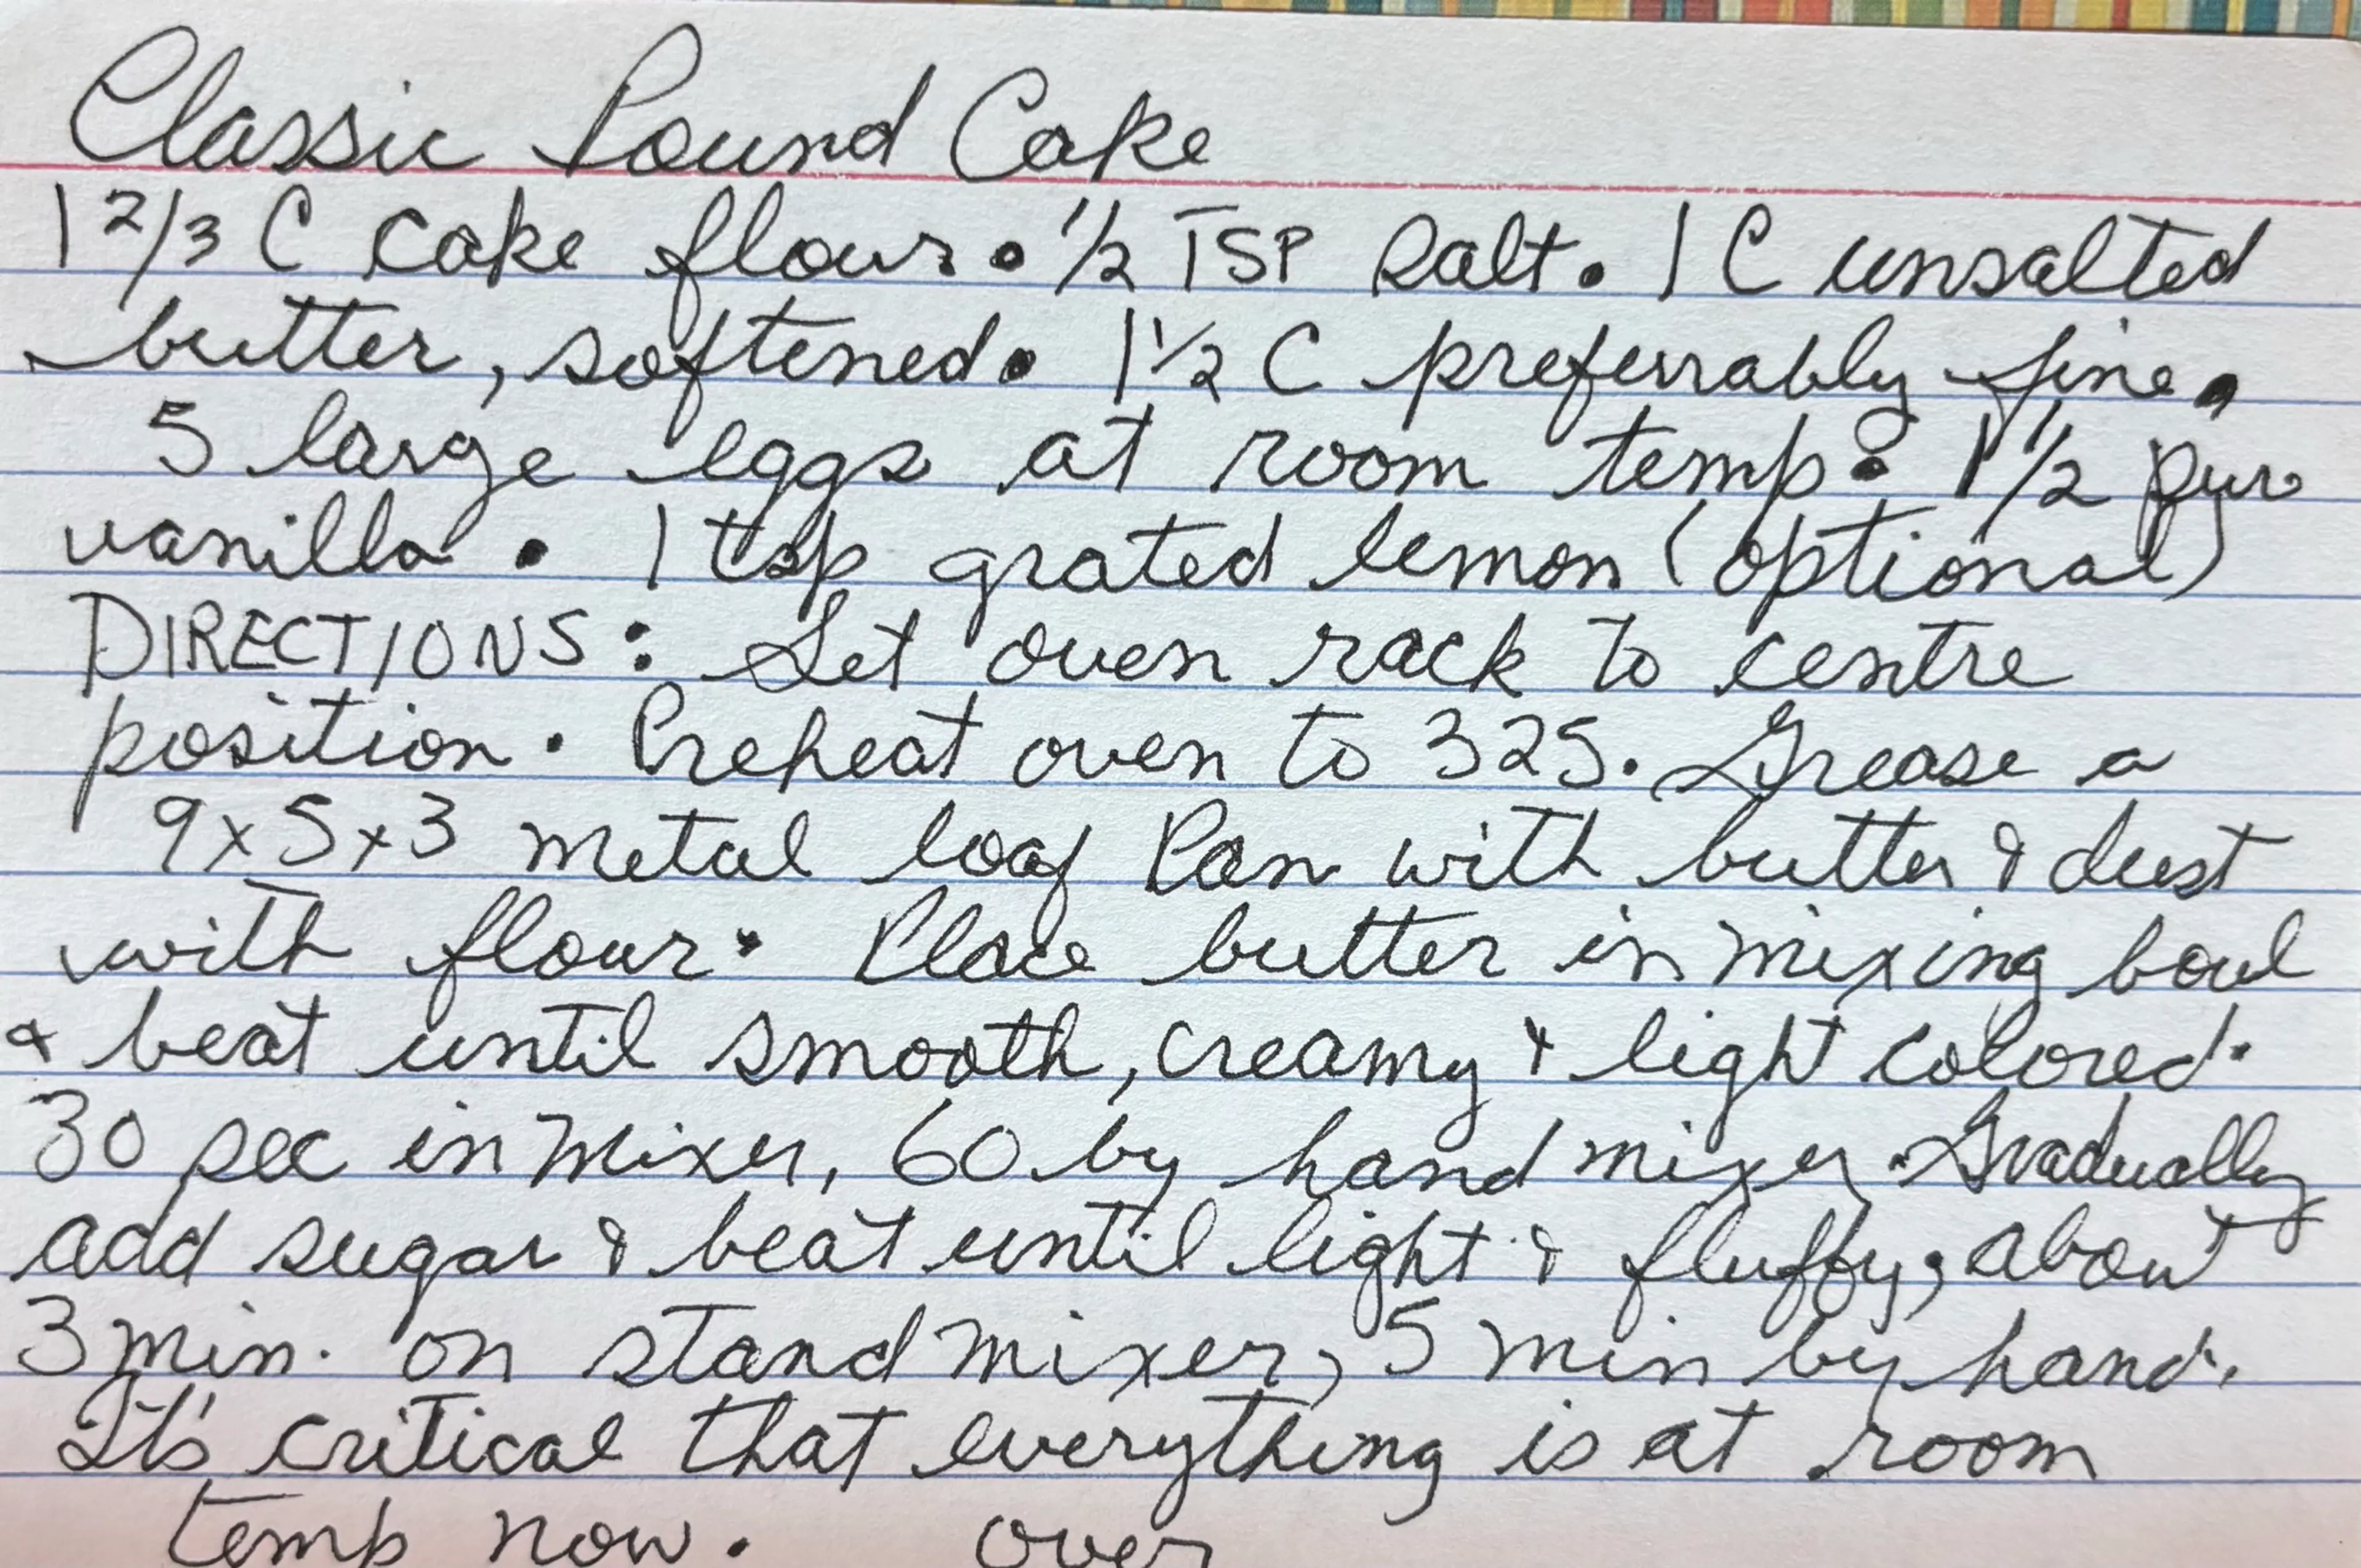 Classic Pound Cake
1 2/3 C cake flour • 1/2 TSP Salt. 1 C unsalted
butter, softened • 1 1/2 C preferrably fine •
5 large eggs at room temp • 1 1/2 pure
vanilla • 1 tsp grated lemon (optional)
DIRECTIONS: Set oven rack to centre
position. Preheat oven to 325. Grease a
9x5x3 metal loaf Pan with butter & dust
with flour. Place butter in mixing bowl
& beat until smooth, creamy & light colored.
30 sec in mixer, 60 by hand mixer. Gradually
add sugar & beat until light & fluffy, about
3 min. on stand mixer, 5 min by hand.
It's critical that everything is at room
temp now. over